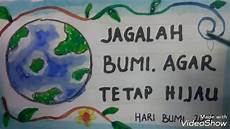 JAGALAH
BUMI. AGAR
TETAP HIJAU
HARI BUMI
Made with
VideoShow